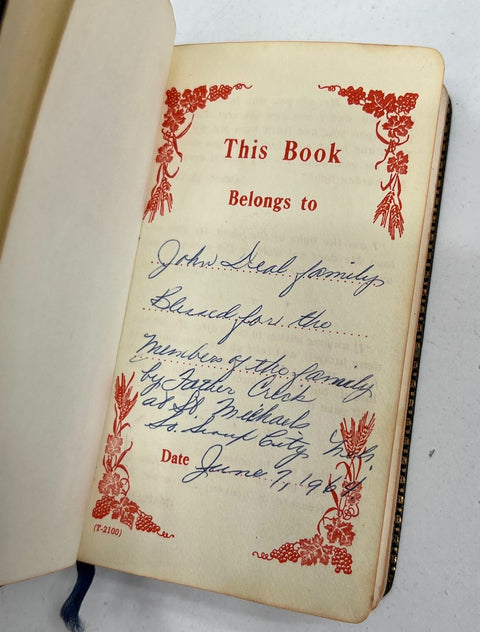 This Book
Belongs to
John Deal family
Blessed for the
Members of the family
by Father Cech
at St. Michaels
So. Sioux City Neb.
Date June 7, 1964
(T-2100)